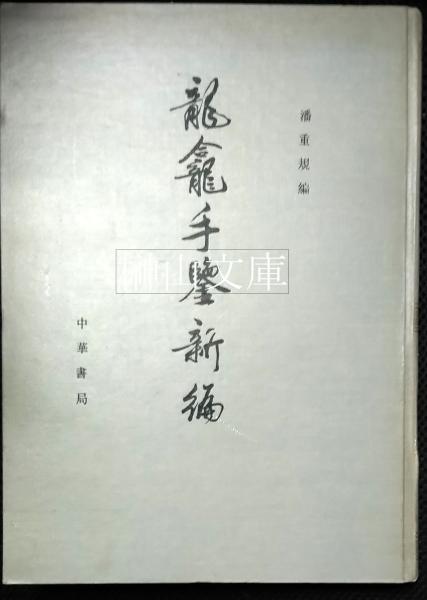 潘重規編
龍龕手鑒新編
中華書局
榊山文庫